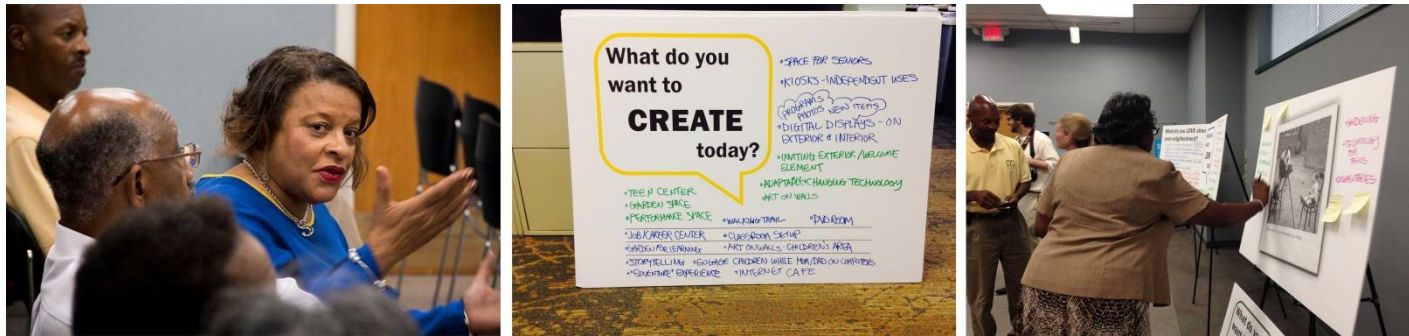 What do you
want to
CREATE
today?
•SPACE FOR SENIORS
•KIOSKS-INDEPENDENT USES
PROGRAMS
PHOTOS NEW ITEMS
•DIGITAL DISPLAYS - ON
EXTERIOR & INTERIOR
•INVITING EXTERIOR/WELCOME
ELEMENT
•ADAPTABLE+CHANGING TECHNOLOGY
ART ON WALLS
•TEEN CENTER
•GARDEN SPACE
•PERFORMANCE SPACE
•WALKING TRAIL
•DVD ROOM
•JOB/CAREER CENTER
•CLASSROOM SETUP
•GARDEN FOR LEARNING
•ART ON WALLS-CHILDREN'S AREA
•STORYTELLING
•ENGAGE CHILDREN WHILE MOM/DAD ON COMPUTERS
•"EDVENTURE" EXPERIENCE
•INTERNET CAFE
EXIT
What do you LOVE about
your neighborhood?
•GARDENING
•TECHNOLOGY
FOR
TEENS
What do you